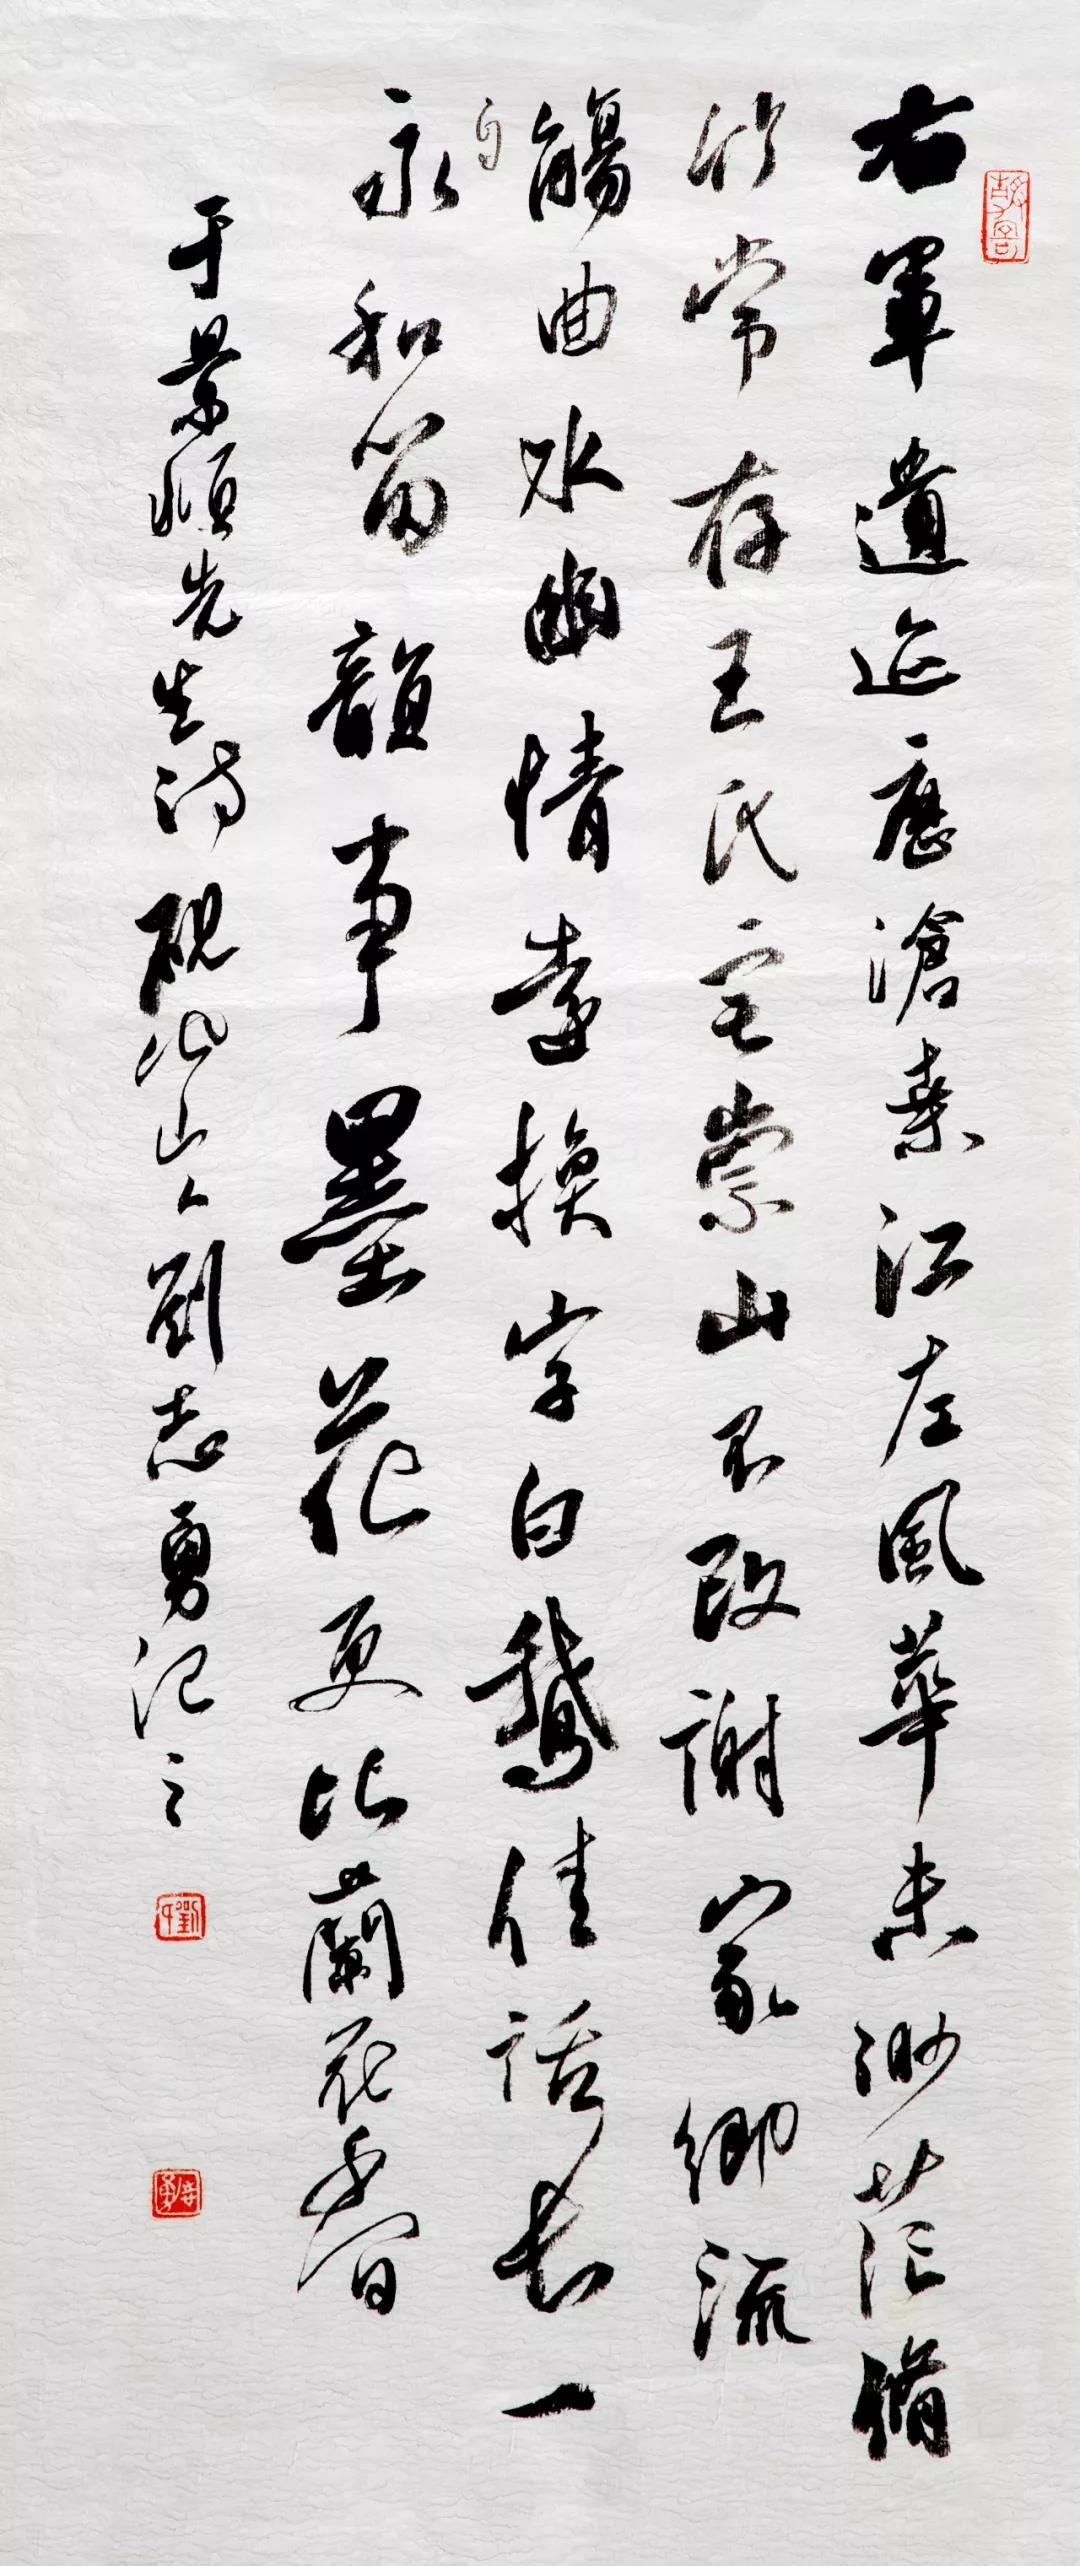 右軍遺迹歷滄桑江左風華未渺茫脩
竹常存王氏宅崇山不改謝家鄉流
觴曲水幽情遠換字白鵝佳話長一
自
永和留韻事墨花更比蘭花香
于景順先生詩 硯山人劉志勇記之